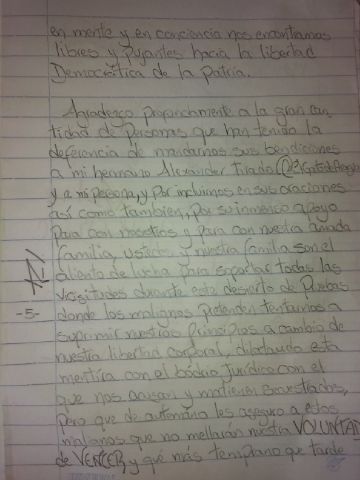 en mente y en conciencia nos encontramos
libres y pujantes hacia la libertad
Democrática de la Patria.
Agradezco profundamente a la gran can
tidad de personas que han tenido la
deferencia de mandarnos sus bendiciones
a mi hermano Alexander Tirado
y a mi persona, y por incluirnos en sus oraciones
así como también, por su inmenso apoyo
para con nosotros y para con nuestra amada
familia, ustedes y nuestra familia son el
aliento de lucha para soportar todas las
vicisitudes durante este desierto de Pruebas
-5-
donde los malignos pretenden tentarnos a
suprimir nuestros principios a cambio de
nuestra libertad corporal, dilatando esta
mentira con el bodrio jurídico con el
que nos acusan y mantienen secuestrados,
pero que de antemano les aseguro a estos
malignos que no mellarán nuestra VOLUNTAD
de VENCER, y que más temprano que tarde